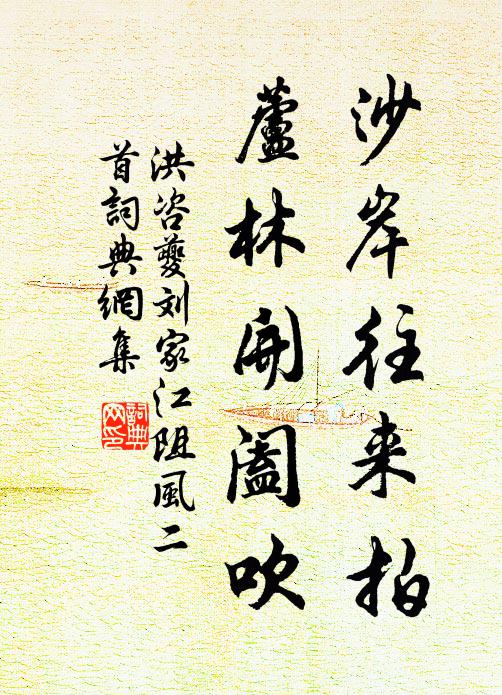 沙岸往来拍
蘆林開闔吹
洪咨夔刘家江阻風二
首詞典網集
詞典
网印